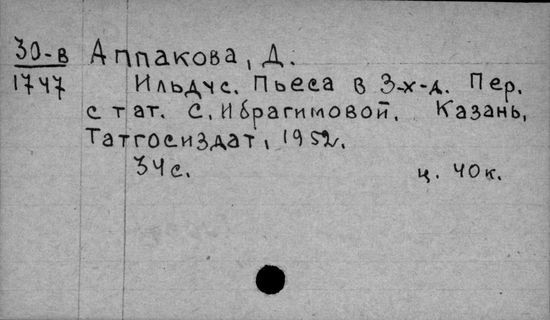 30-в Аппакова, Д.
1747 Ильдус. Пьеса в 3-х-д. Пер.
с тат. С. Ибрагимовой. Казань,
Татгосиздат, 1952.
34с. ц. 40к.